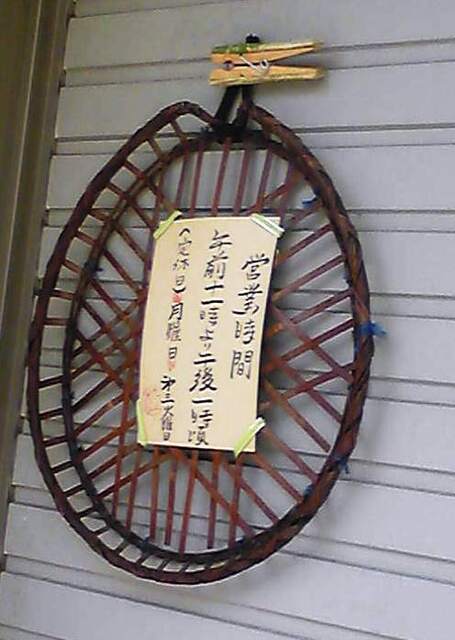 営業時間
午前十一時より二後一時頃
(定休日)月曜日 第三火曜日